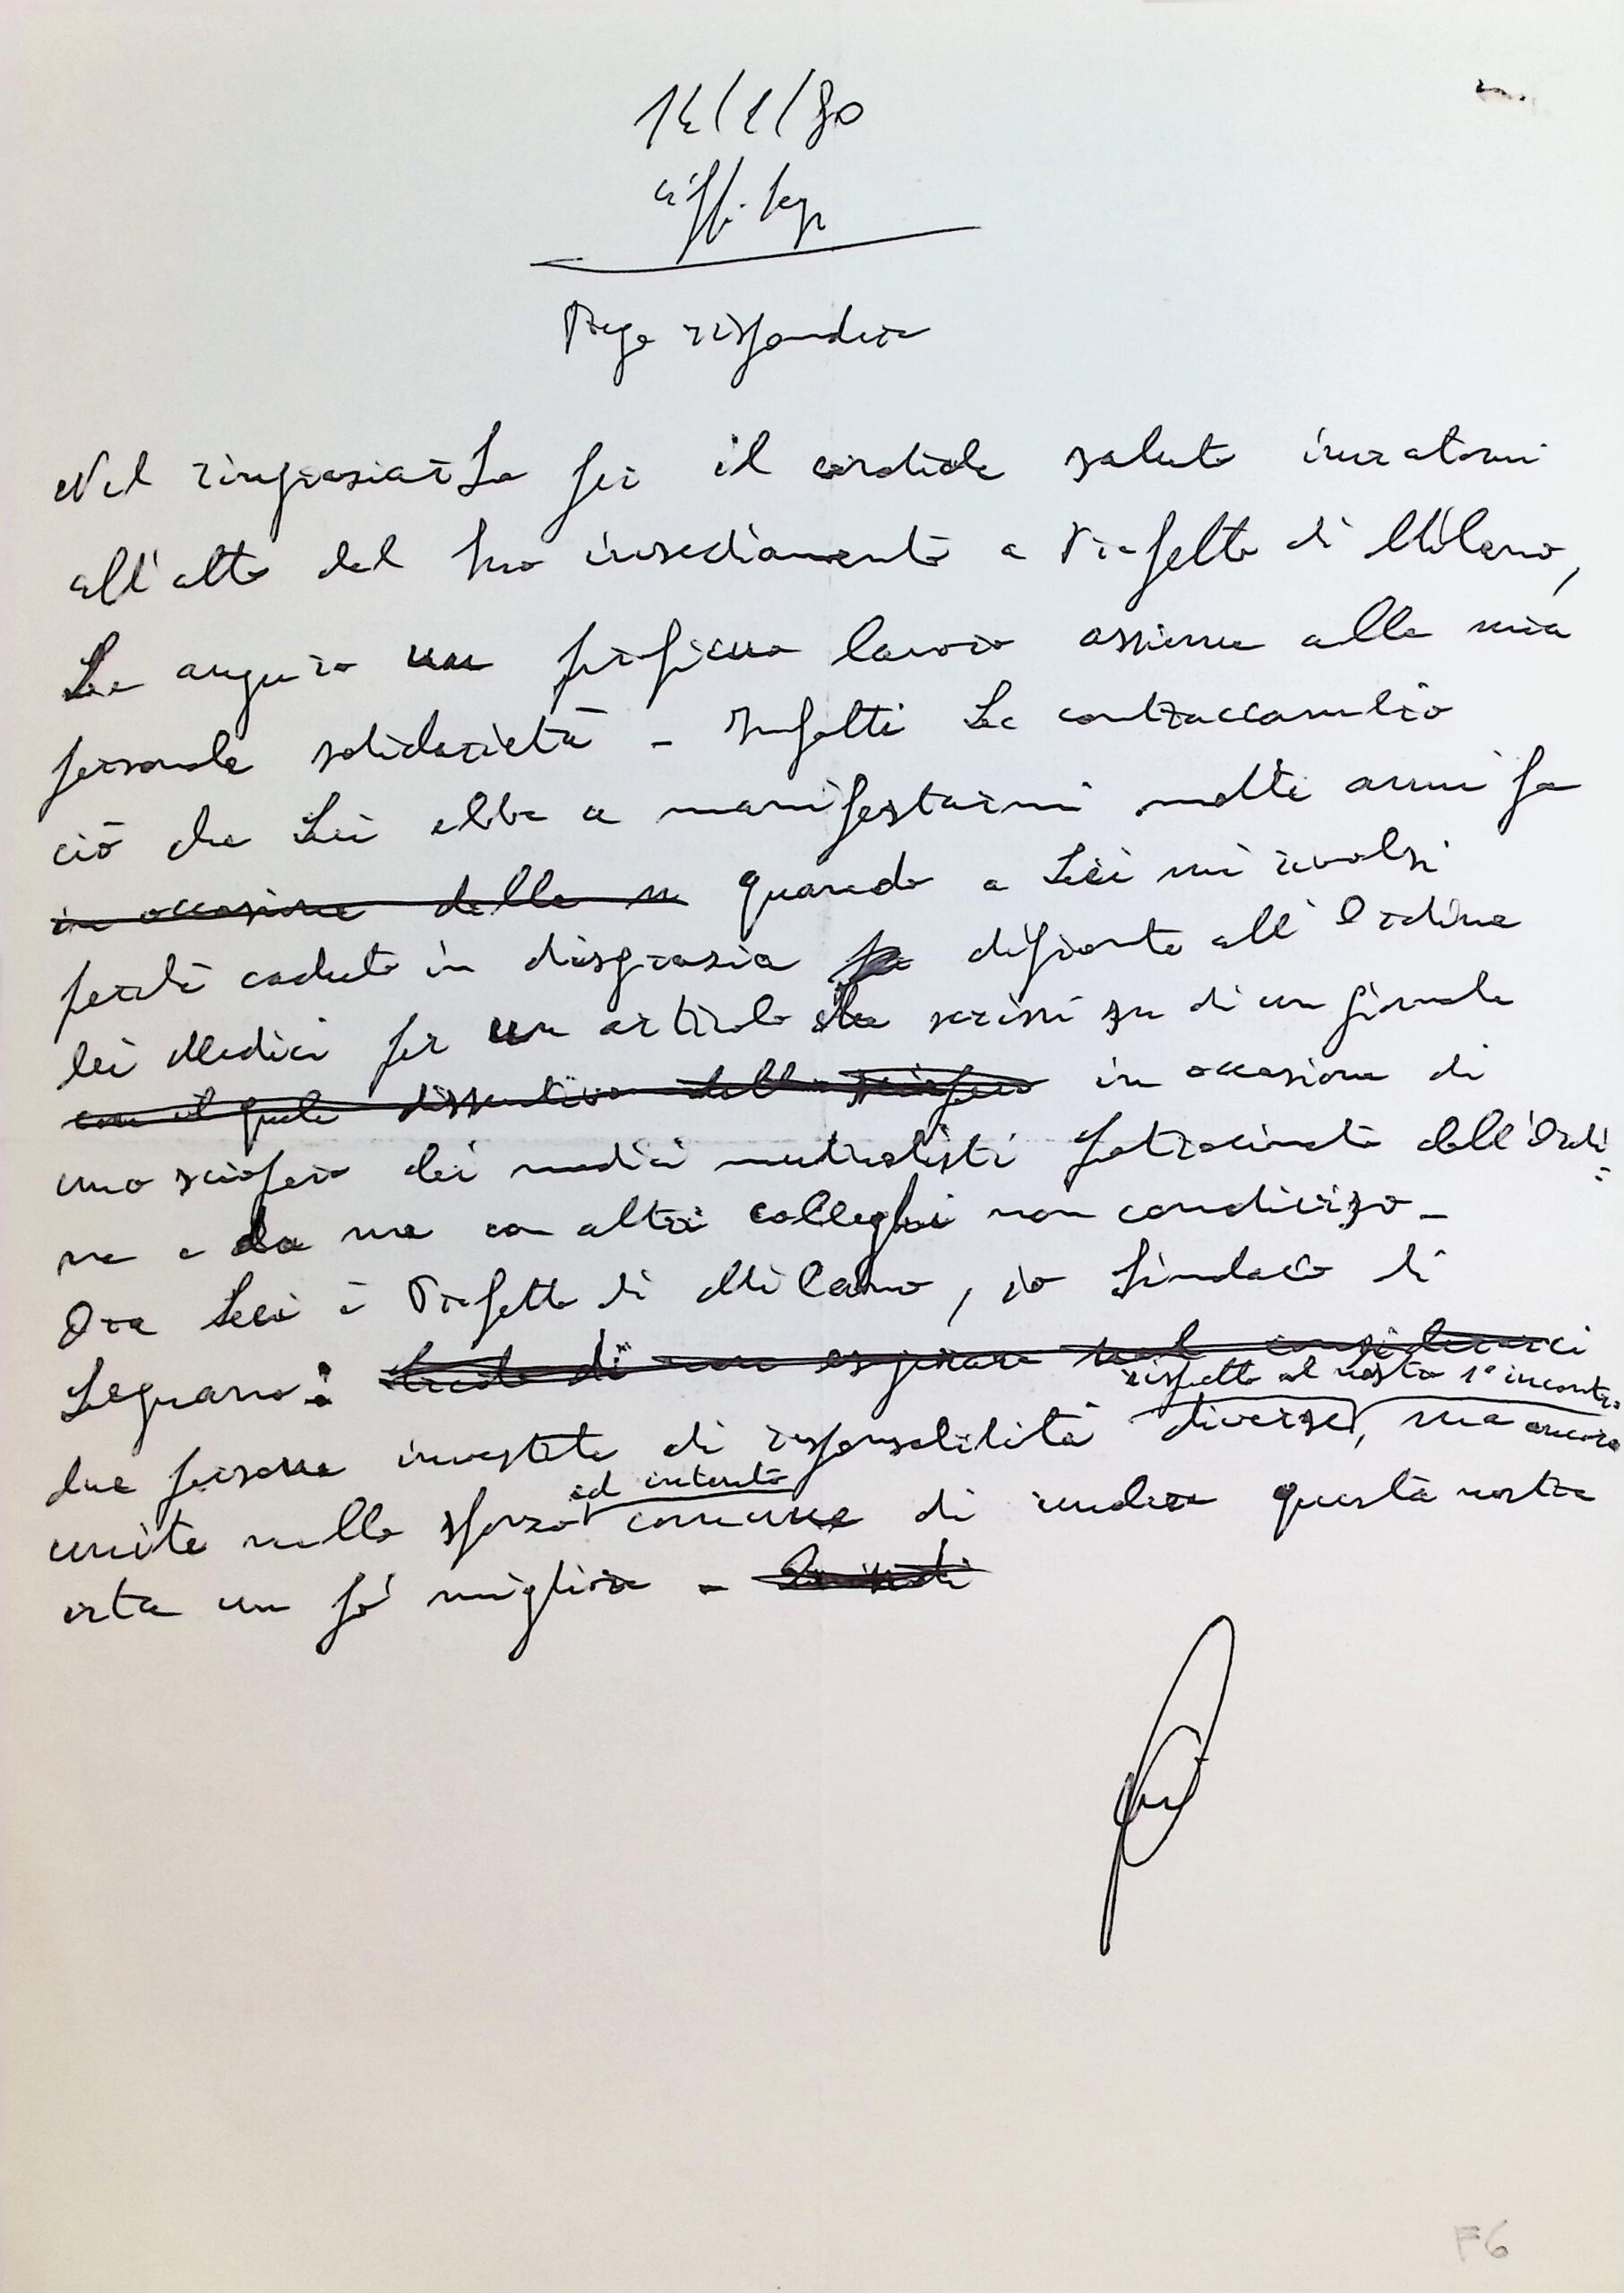 14/1/80
uff. segr
Prego rispondere
Nel ringraziarLa per il cordiale saluto inviatomi
all'atto del Suo insediamento a Prefetto di Milano,
Le auguro un proficuo lavoro assieme alla mia
personale solidarietà - Infatti Le contraccambio
ciò che Lei ebbe a manifestarmi molti anni fa
in occasione della quando a Lei mi rivolsi
perché caduto in disgrazia difronte all'Ordine
dei Medici per un articolo che scrissi su di un giornale
con il quale dissentivo dallo sciopero in occasione di
uno sciopero dei medici mutualisti patrocinato dall'Ordi=
ne e da me con altri colleghi non condiviso -
Ora Lei è Prefetto di Milano, io Sindaco di
Legnano: credo di non esagerare nel considerarci
rispetto al nostro 1° incontro
due persone investite di responsabilità diverse, ma ancora
ed intento
unite nello sforzo comune di rendere questa nostra
vita un pò migliore - Quindi
F6